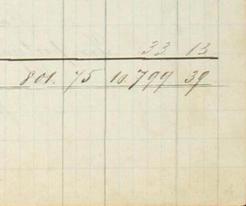 33 13
801. 75 10.799 39